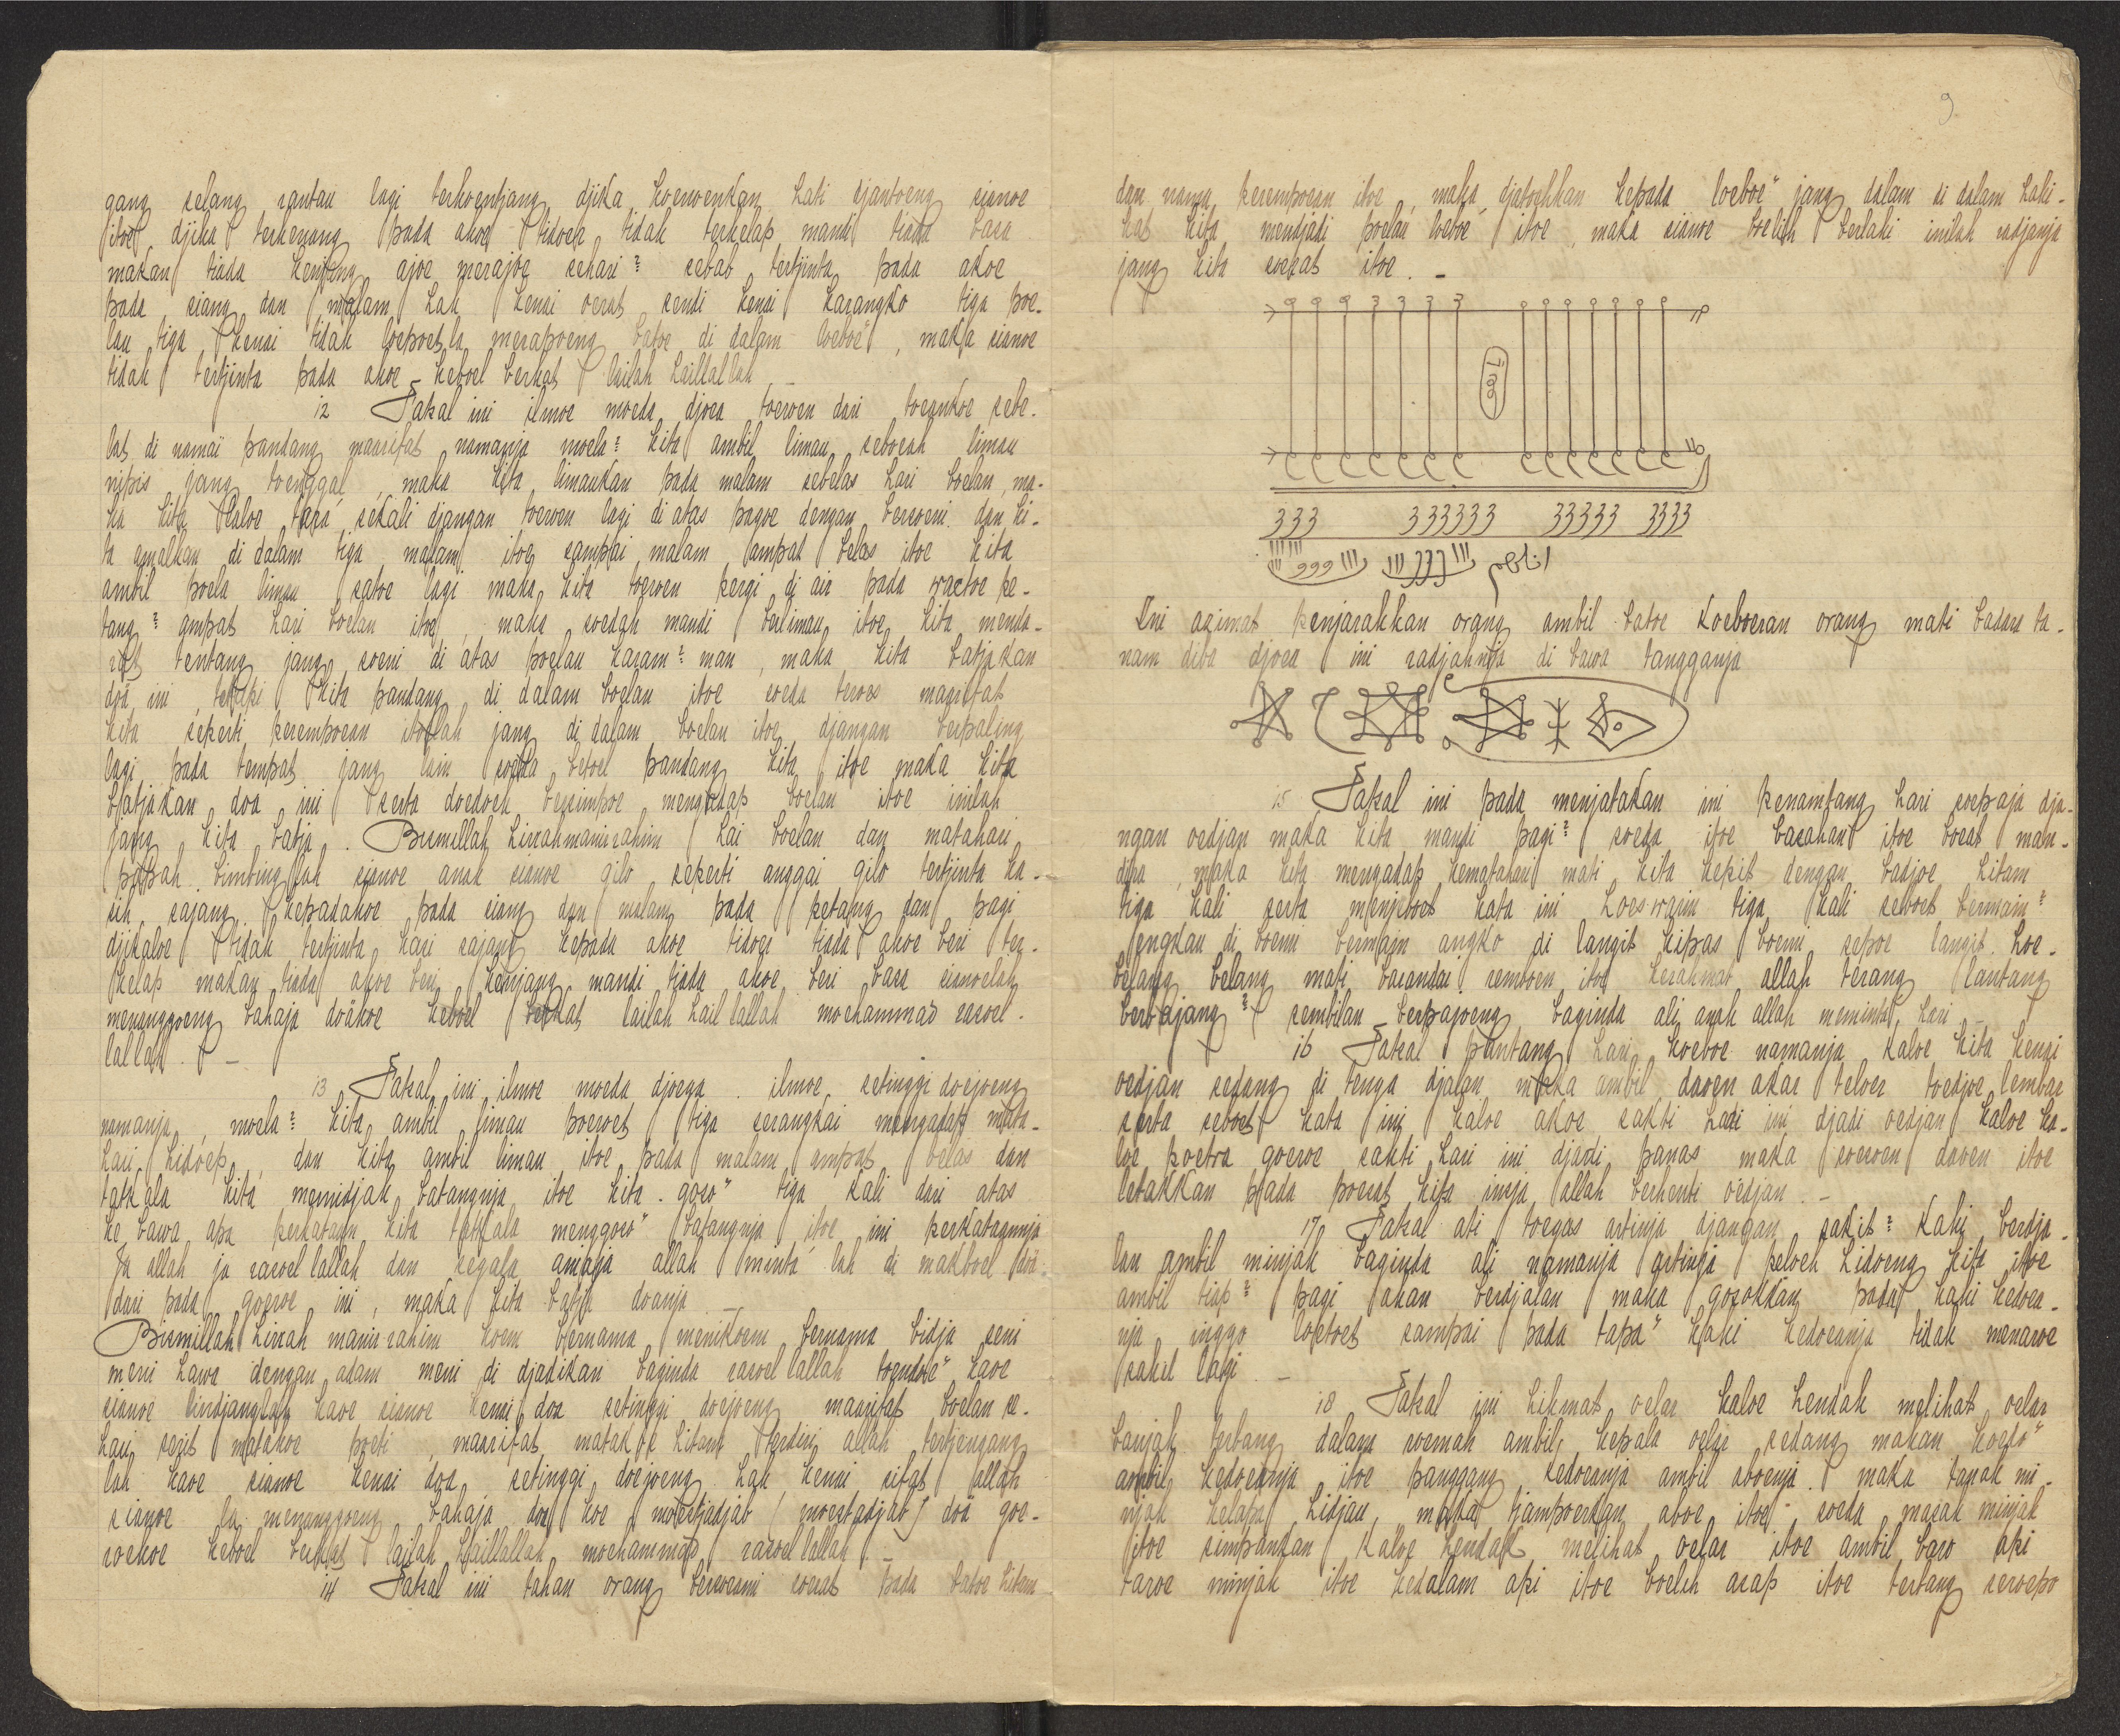 gang selang rantau lagi terhoentjang djika koeroenkan hati djantoeng sianoe
itoe djika terkenang pada akoe tidoer tidak terkelap mandi tiada basa
makan tiada kenjang ajoe merajoe sehari² sebab tertjinta pada akoe
pada siang dan malam hak kenai oerat sendi kenai karangko tiga poe-
lau tiga kenai tidak loepoet la merapoeng batoe di dalam loeboe", maka sianoe
tidak tertjinta pada akoe keboel berkat lailah haillallah . –
12 Patsal ini ilmoe moeda djoea toeroen dari toeankoe sebe-
lat di namaï pandang maarifat namanja moela² kita ambil limau seboeah limau
nipis jang toenggal, maka kita limaukan pada malam sebelas hari boelan, ma-
ka kita kaloe taga sekali djangan toeroen lagi di atas pagoe dengan bersoeni dan ki-
ta amalkan di dalam tiga malam itoe sampai malam ampat belas itoe kita
ambil poela limau satoe lagi maka kita toeroen pergi di air pada waktoe pe-
tang² ampat hari boelan itoe, maka soedah mandi berlimau itoe kita menda-
rat tentang jang soeni di atas poelau karam² man, maka kita batjakan
doä ini, tetapi kita pandang di dalam boelan itoe soeda teroes magrifat
kita seperti perempoean itoelah jang di dalam boelan itoe djangan berpaling
lagi pada tempat jang lain soeda betoel pandang kita itoe maka kita
batjakan doa ini serta doedoek bersimpoe mengadap boelan itoe inilah
jang kita batja. Bismillah hirrahmanirrahim hai boelan dan matahari
papah bimbinglah sianoe anak sianoe gilo seperti anggai gilo tertjinta ka-
sih sajang kepadakoe pada siang dan malam pada petang dan pagi
djikaloe tidak tertjinta kasi sajang kepada akoe tidoer tiada akoe beri ter-
kelap makan tiada akoe beri kenjang mandi tiada akoe beri basa sianoelah
menanggoeng bahaja doäkoe keboel berkat lailah hail lallah mochammad rasoel-
lallah . –
13 Patsal ini ilmoe moeda djoega . ilmoe setinggi doejoeng
namanja, moela² kita ambil limau poeroet tiga serangkai mengadap mata-
hari hidoep, dan kita ambil limau itoe pada malam ampat belas dan
tatkala kita memidjak batangnja itoe kita goso" tiga kali dari atas
ke bawa apa perkataan kita tatkala menggoso" batangnja itoe ini perkataannja
Ja allah ja rasoel lallah dan segala ainaja allah minta' lah di makboel doä
dari pada goeroe ini, maka kita batja doanja . –
Bismillah hirrah manirrahim koem bernama menikoem bernama bidja seni
meni hawa dengan adam meni di djadikan baginda rasoel lallah toendoe" kaoe
sianoe lindjanglah kaoe sianoe kenai doa setinggi doejoeng maarifat boelan se-
hari serit matakoe poeti, maarifat matakoe hitam terdiri allah tertjengang
lah kaoe sianoe kenai doa setinggi doejoeng hak kenai sifat allah
sianoe la menanggoeng bahaja doa koe moestjadjab (moestadjab) doä goe-
roekoe keboel berkat lailah haillallah mochammad rasoel lallah . –
14 Patsal ini tahan orang bersoeami soerat pada batoe hitam
9
dan nama perempoean itoe, maka djatoehkan kepada loeboe" jang dalam di dalam haki-
kat kita mendjadi poelau loeboe itoe, maka sianoe boelih berlaki inilah radjanja
jang kita soerat itoe . –
333 333333 33333 3333
Ini azimat penjarahkan orang ambil batoe koeboeran orang mati badara ta-
nam diba djoea ini radjahnja di bawa tangganja
15 Patsal ini pada menjatakan ini penamtang hari soepaja dja-
ngan oedjan maka kita mandi pagi² soeda itoe basahan itoe boeat man-
dira, maka kita mengadap kematahari mati kita kepit dengan badjoe hitam
tiga kali serta menjeboet kata ini hoes warin tiga kali seboet bermain²
engkau di boemi bermain angko di langit kipas boemi sepoe langit hoe-
belang belang mati basandar remboen itoe kerahmat allah terang lantang
berbajang² sembilan berpajoeng baginda ali anak allah meminta hari –
16 Patsal pantang hari koeboe namanja kaloe kita kenai
oedjan sedang di tenga djalan maka ambil daoen akar teloer toedjoe lembar
serta seboet kata ini kaloe akoe sakti hari ini djadi oedjan kaloe ka-
loe poetra goeroe sakti hari ini djadi panas maka soeroen daoen itoe
letakkan pada poesat kita insja allah berhenti oedjan . –
17 Patsal ati toegas artinja djangan sakit² kaki berdja-
lan ambil minjak baginda ali namanja artinja peloeh hidoeng kita itoe
ambil tiap² pagi akan berdjalan maka gosokkan pada kaki kedoea-
nja inggo loetoet sampai pada tapa" kaki kedoeanja tidak menaroe
sakit lagi . –
18 Patsal ini hikmat oelar kaloe hendak melihat oelar
banjak terbang dalam roemah ambil kepala oelar sedang makan kodo"
ambil kedoeanja itoe panggang kedoeanja ambil aboenja . maka tanak mi-
njak kelapa hidjau, maka tjampoerkan aboe itoe soeda masak minjak
itoe simpankan kaloe hendak melihat oelar itoe ambil baro api
taroe minjak itoe kedalam api itoe boelih asap itoe terbang seroepo